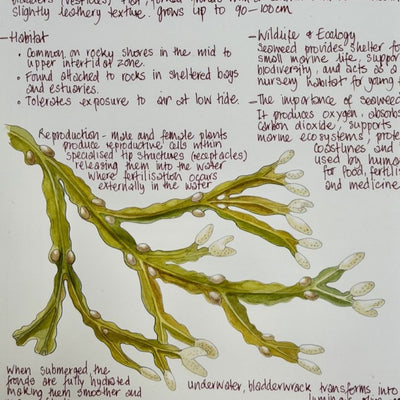 slightly leathery texture. grows up to 90-100cm
-Habitat
• Common on rocky shores in the mid to
upper intertidal zone.
• Found attached to rocks in sheltered bays
and estuaries.
• Tolerates exposure to air at low tide.
-Wildlife & Ecology
seaweed provides shelter fo
small marine life, support
biodiversity, and acts as a
nursery habitat for young f
-The importance of seaweed
It produces oxygen, absorbs
carbon dioxide, supports
marine ecosystems, prote
coastlines and
used by huma
for food, fertilis
and medicine
Reproduction - male and female plants
produce reproductive cells within
specialised tip structures (receptacles)
releasing them into the water
where fertilisation occurs
externally in the water
when submerged the
fronds are fully hydrated
making them smoother and
underwater, bladderwrack transforms into